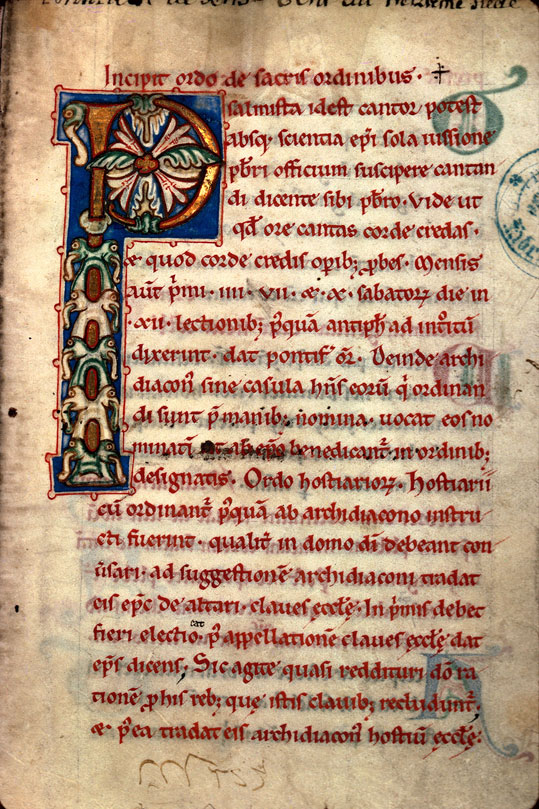 Incipit ordo de sacris ordinibus · +
Psalmista idest cantor potest
absq; scientia ep̄i sola iussione
p̄bri officium suscipere cantan
di dicente sibi p̄bro · Vide ut
qd̄ ore cantas corde credas ·
& quod corde credis oꝑib; ꝓbes · Mensis
aut̄ p̄mi · iiii · vii · & · x · sabatoꝝ die in
· xii · lectionib; p̄quā antiph̄ ad intoitū
dixerint · dat pontif̄ or̄ · Deinde archi
diacon̄ sine casula hn̄s eorū q̄ ordinan
di sunt p̄ manib; nomina · uocat eos no
minatī ut ab ep̄o benedicant̄ · in ordinib;
designatis · Ordo hostiarioꝝ · Hostiarii
cū ordinant̄ p̄quā ab archidiacono instru
cti fuerint · qualit̄ in domo dī debeant con
u̅sari · ad suggestionē archidiaconi tradat
eis ep̄c de altari · claues eccl̄ę · In p̄mis debet
fieri electio · cat p̄ appellationē claues eccl̄ę dat
ep̄s dicens · Sic agite quasi reddituri dō ra
tionē ꝓ his reb; quę istis clauib; recludunt̄ ·
& · p̄ea tradat eis archidiacon̄ hostiū eccl̄ę ·